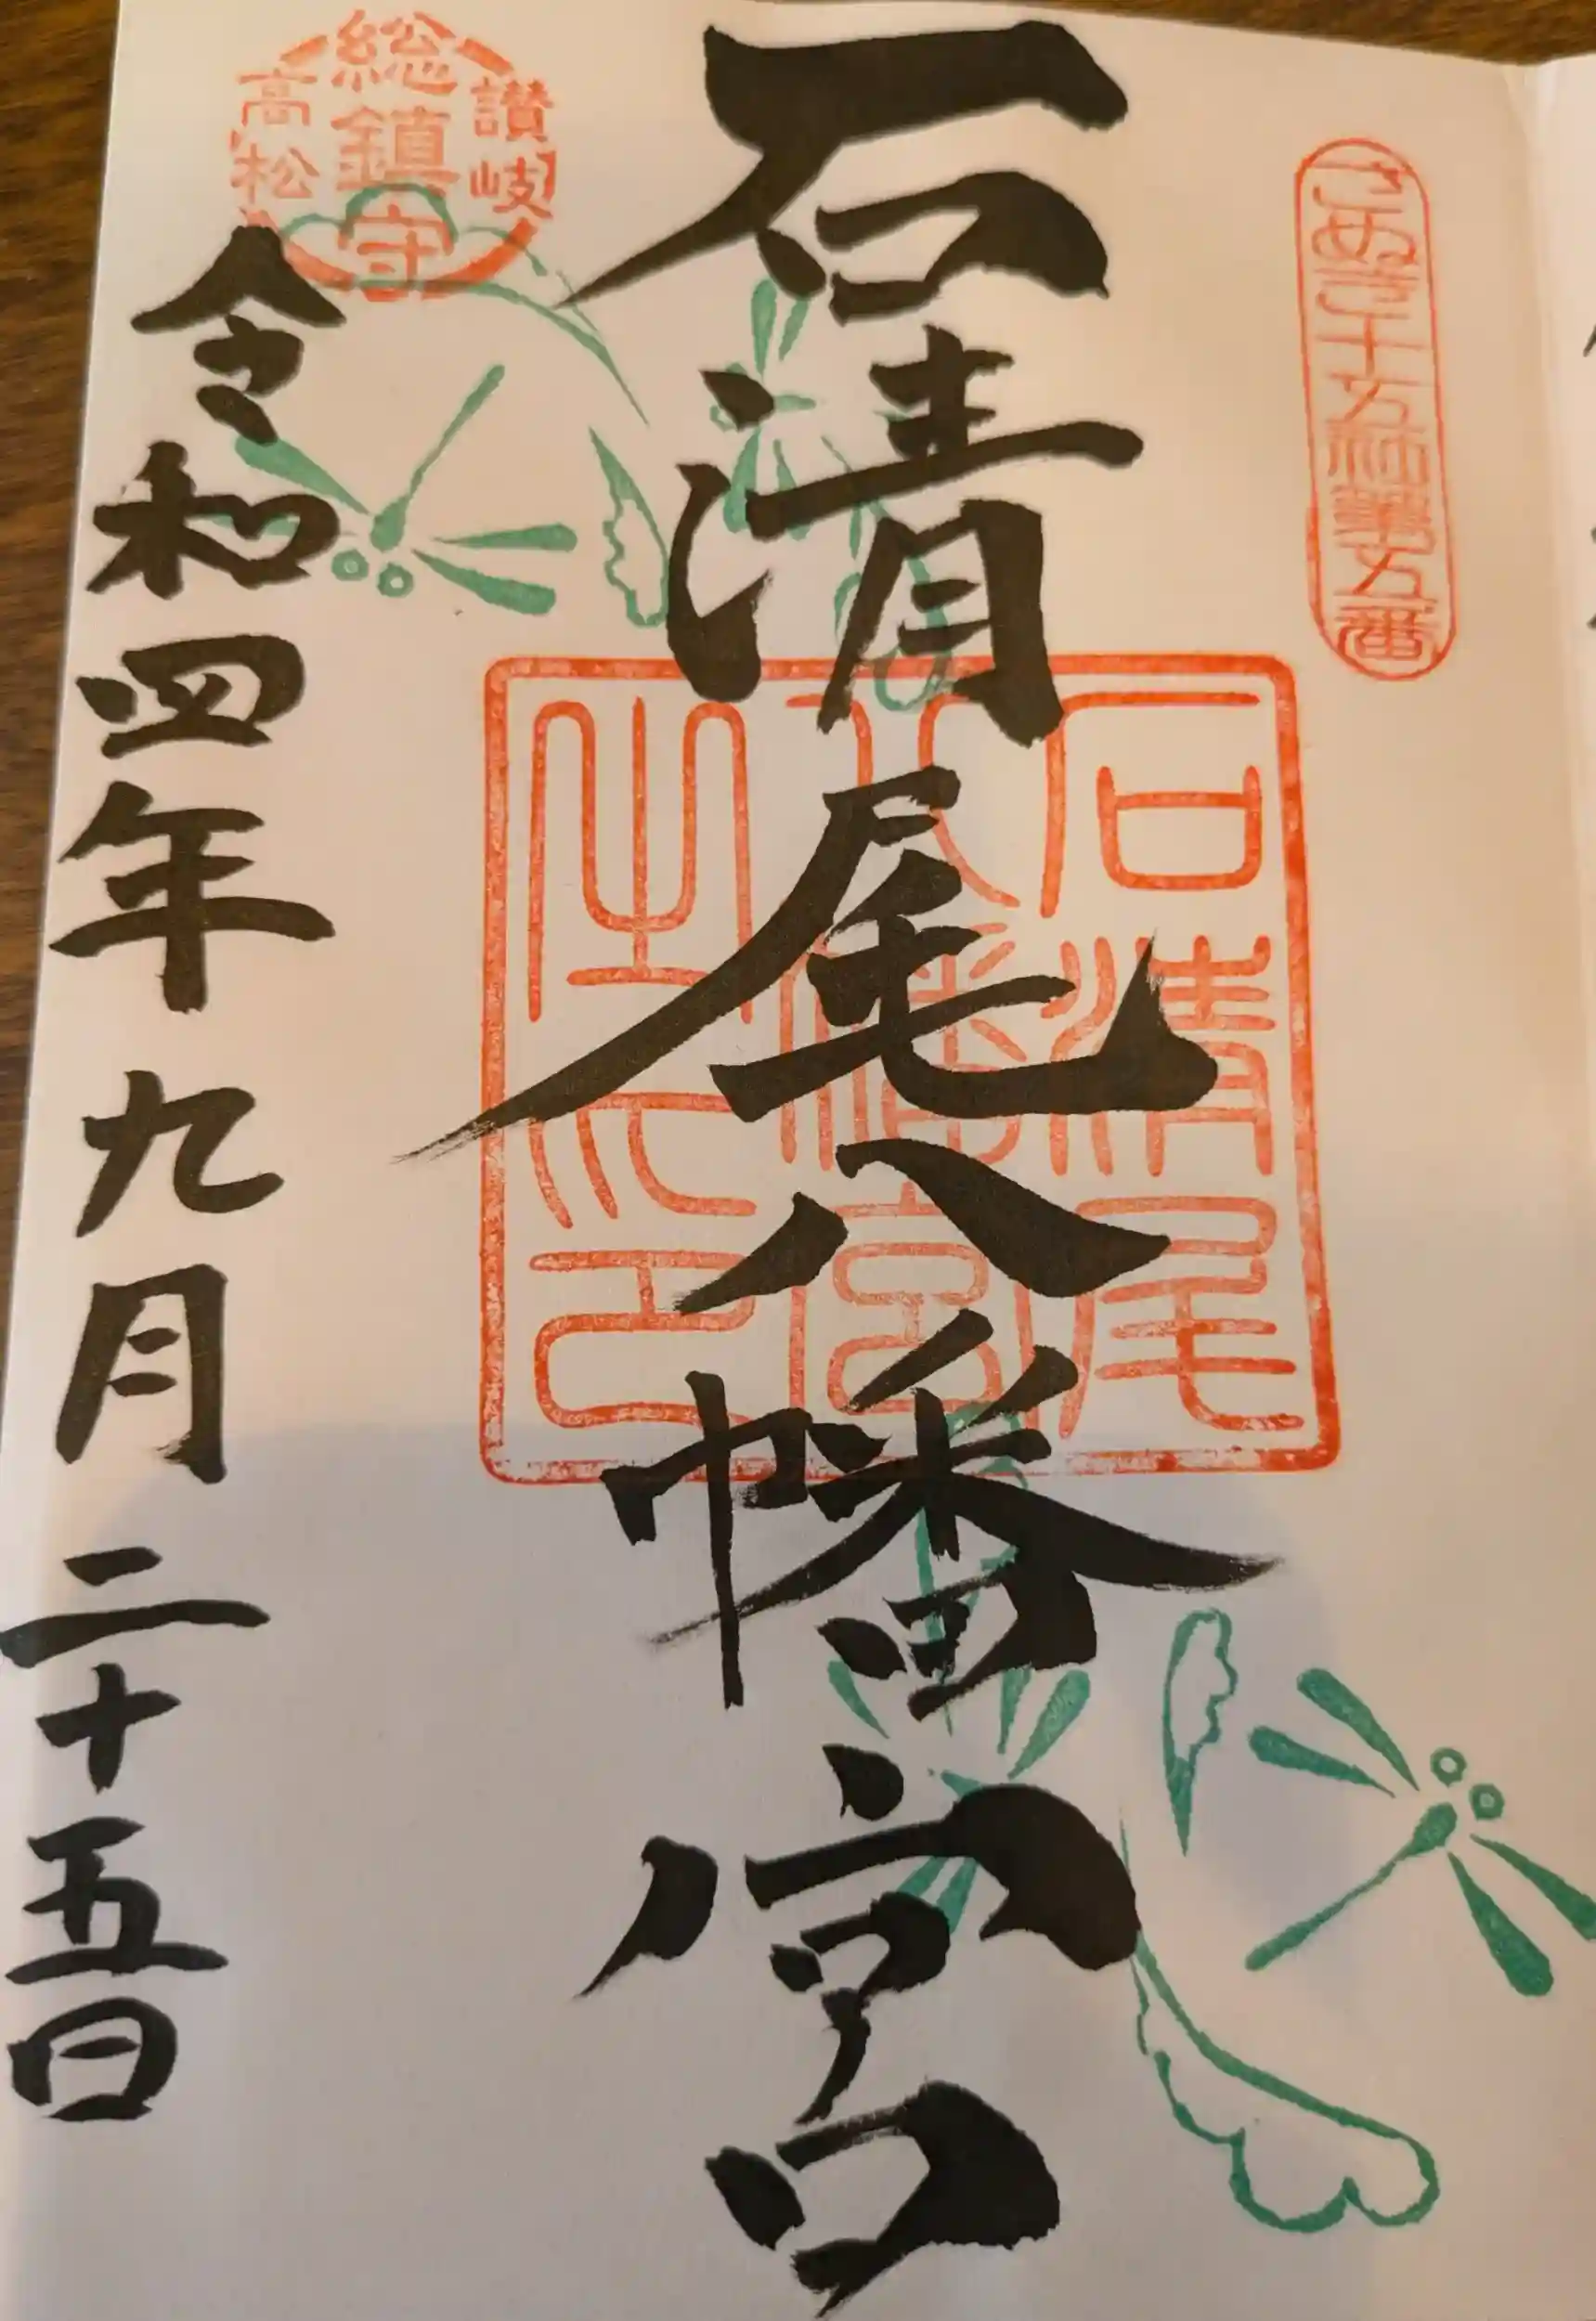 さぬき十五社第五番
石清尾八幡宮
石清尾
八幡宮
之印
讃岐
総鎮守
高松
令和四年九月二十五日